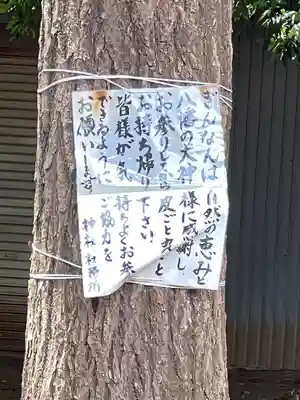 ぎんなんは自然の恵みと
八幡の大神様に感謝し
お参りしてから皮ごと丸ごと
お持ち帰り下さい
皆様が気持ちよくお参
できるようにご協力を
お願いします。神社社務所